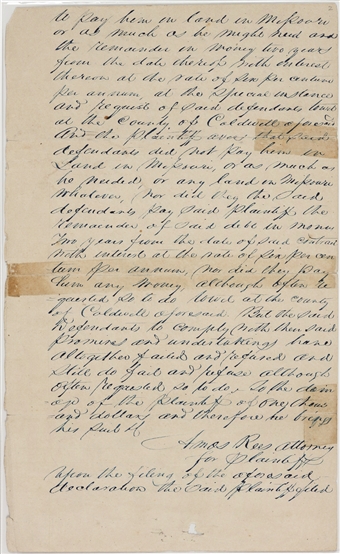 to pay him in land in Missouri
or as much as he might need and
the remainder in money two years
from the date thereof with interest
thereon at the rate of six per centum
per annum, at the special instance
and request of said defendants towit
at the County of Caldwell aforesaid
And the Plaintiff avers that said
defendants did not pay him in
Land in Missouri, or as much as
he needed, or any land in Missouri
whatever, nor did they the said
defendants pay said Plaintiff the
remainder of said debt in money
Two years from the date of said contract
with interest at the rate of six per cen
tum per annum, nor did they pay
him any money although often re
quested so to do towit at the county
of Caldwell aforesaid. But the said
Defendants to comply with their said
Promises and undertakings have
altogether failed and refused and
still do fail and refuse although
often requested so to do, To the dam
age of the Plaintiff of one thous
and dollars and therefore he brings
his suit &
Amos Rees Attorney
for Plaintiff
Upon the filing of the aforesaid
Declaration the said Plaintiff filed